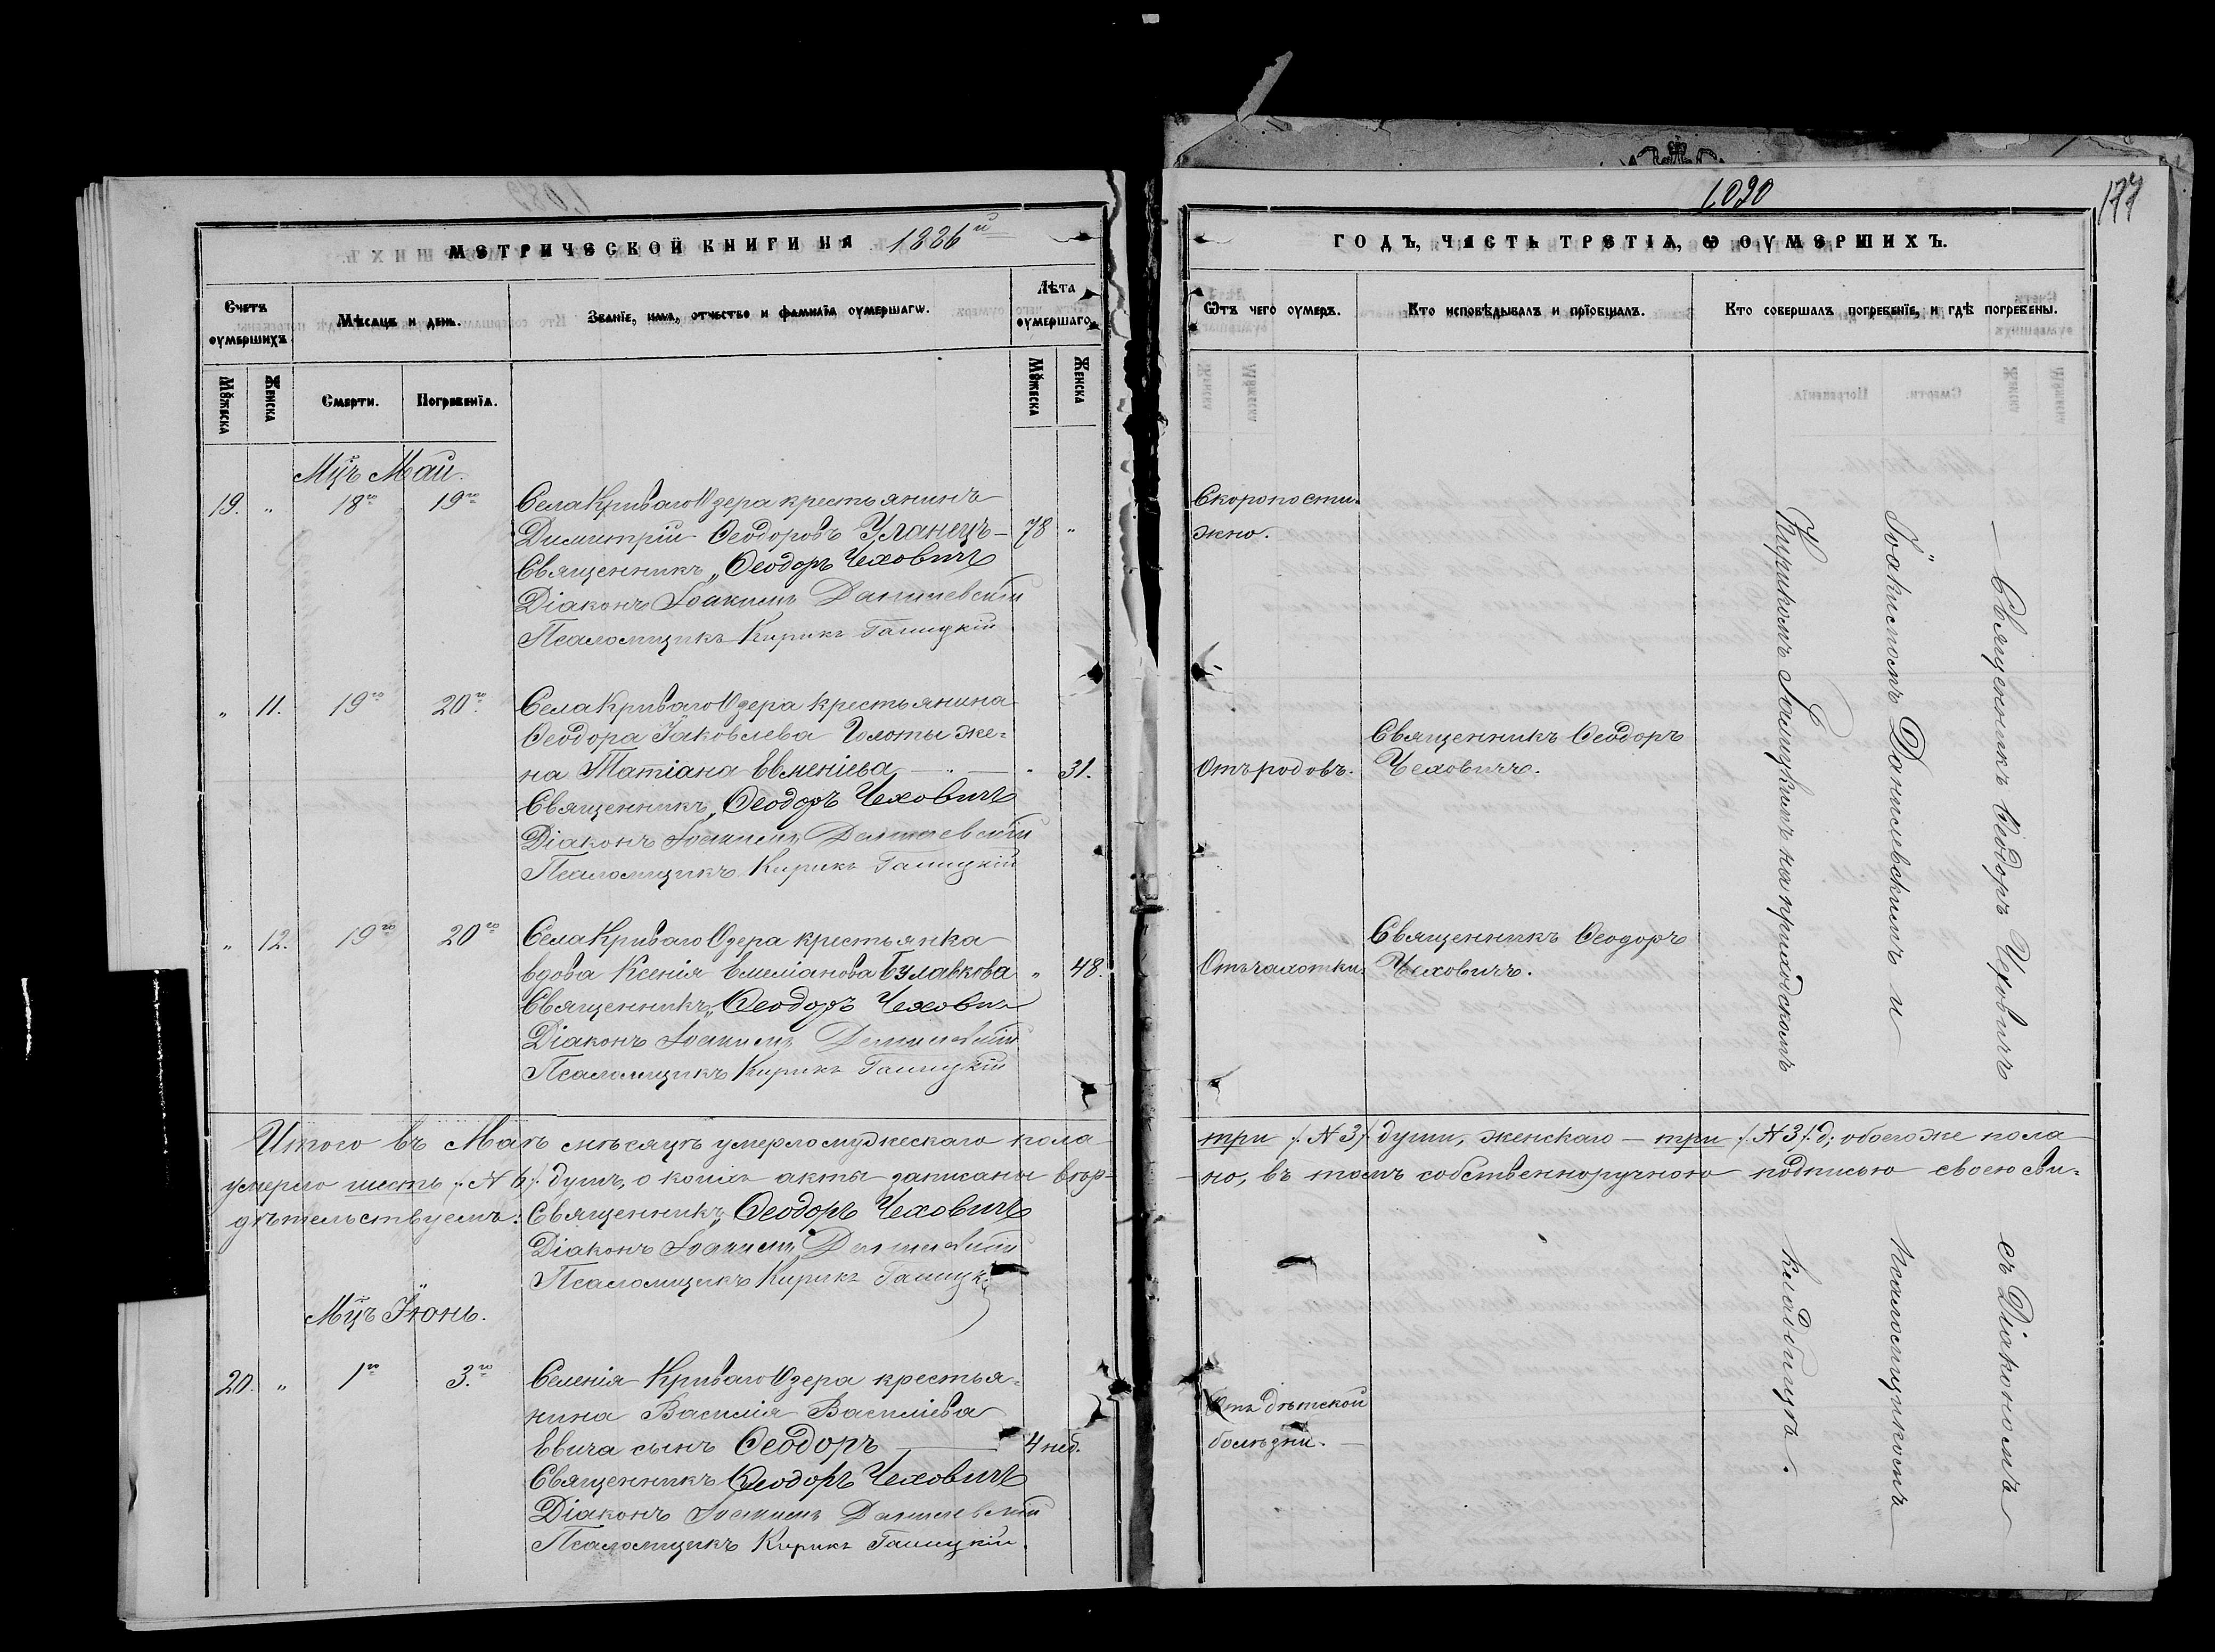 МЕТРИЧЕСКОЙ КНИГИ НА 1886й
Счетъ оумершихъ.
Мѣсяцъ и день.
Званїе, имя, отчество и фамилїа оумершагѡ.
Лѣта оумершаго.
Мꙋжеска
Женска
Смерти.
Погребенїѧ.
Мꙋжеска
Женска
Мцъ Май.
19. " 18го 19го Села Криваго Озера крестьянинъ
Димитрій Ѳеодоровъ Уланецъ – 78 "
Священникъ, Ѳеодоръ Чеховичъ
Діаконъ Іоакимъ Данилевскій
Псаломщикъ Кирикъ Галицкій
" 11. 19го 20го Села Криваго Озера крестьянина
Ѳеодора Іаковлева Голоты же-
на Татіана Евменіева — " — " 31.
Священникъ, Ѳеодоръ Чеховичъ
Діаконъ Іоакимъ Данилевскій
Псаломщикъ Кирикъ Галицкій
" 12. 19го 20го Села Криваго Озера крестьянка
вдова Ксенія Емеліанова Булавкова " 48.
Священникъ, Ѳеодоръ Чеховичъ
Діаконъ Іоакимъ Данилевскій
Псаломщикъ Кирикъ Галицкій
Итого въ Маѣ мѣсяцѣ умерло мужескаго пола
умерло шесть /:N 6/: душъ, о коихъ акты записаны вѣр-
дѣтельствуемъ: Священникъ, Ѳеодоръ Чеховичъ
Діаконъ Іоакимъ Данилевскій
Псаломщикъ Кирикъ Галицкій
Мцъ Іюнь.
20. " 1го 3го Селенія Криваго Озера крестья-
нина Василія Василіева
Евича сынъ Ѳеодоръ — 4 нед.
Священникъ Ѳеодоръ Чеховичъ
Діаконъ Іоакимъ Данилевскій
Псаломщикъ Кирикъ Галицкій.
1090
177
ГОДЪ, ЧАСТЬ ТРЕТІѦ, Ѡ ОУМЕРШИХЪ.
Ѿтъ чего оумеръ.
Кто исповѣдывалъ и прїобщалъ.
Кто совершалъ погребенїе, и гдѣ погребены.
Скоропости-
жно.
Священникъ Ѳеодоръ
Отъ родовъ. Чеховичъ.
Священникъ Ѳеодоръ
Отъ чахотки. Чеховичъ.
три /:N 3/: души, женскаго – три /:N 3/: д; обоего же пола
но, въ томъ собственноручною подписью своею сви-
Отъ дѣтской
болѣзни. —
— Священникъ Ѳеодоръ Чеховичъ съ Діакономъ
Іоакимомъ Данилевскимъ и псаломщикомъ
Кирикомъ Галицкимъ на приходскомъ кладбищѣ.